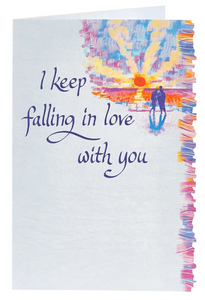 I keep
falling in love
with you